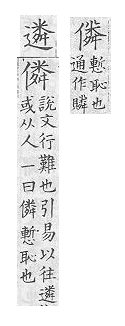 僯
慙恥也
通作瞵
遴
僯
說文行難也引易以往遴
或从人一曰僯慙恥也